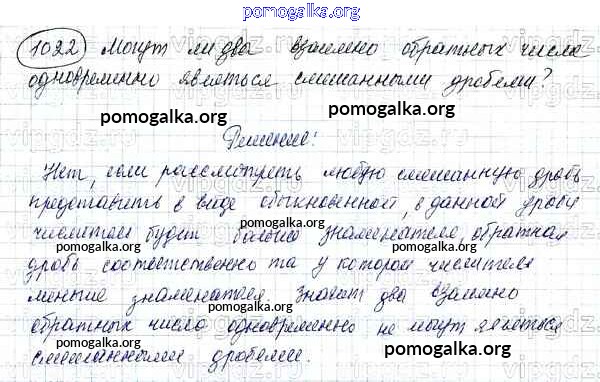 pomogalka.org
1022 Могут ли два взаимно обратных числа
одновременно являться смешанными дробями?
pomogalka.org pomogalka.org
Решение:
pomogalka.org
Нет, если рассмотреть любую смешанную дробь
представить в виде обыкновенной, в данной дроби
pomogalka.org
числитель будет больше знаменателя, обратная
pomogalka.org pomogalka.org
дробь соответственно та у которой числитель
меньше знаменателя. Значит два взаимно
pomogalka.org
обратных число одновременно не могут являться
pomogalka.org
смешанными дробями.
pomogalka.org